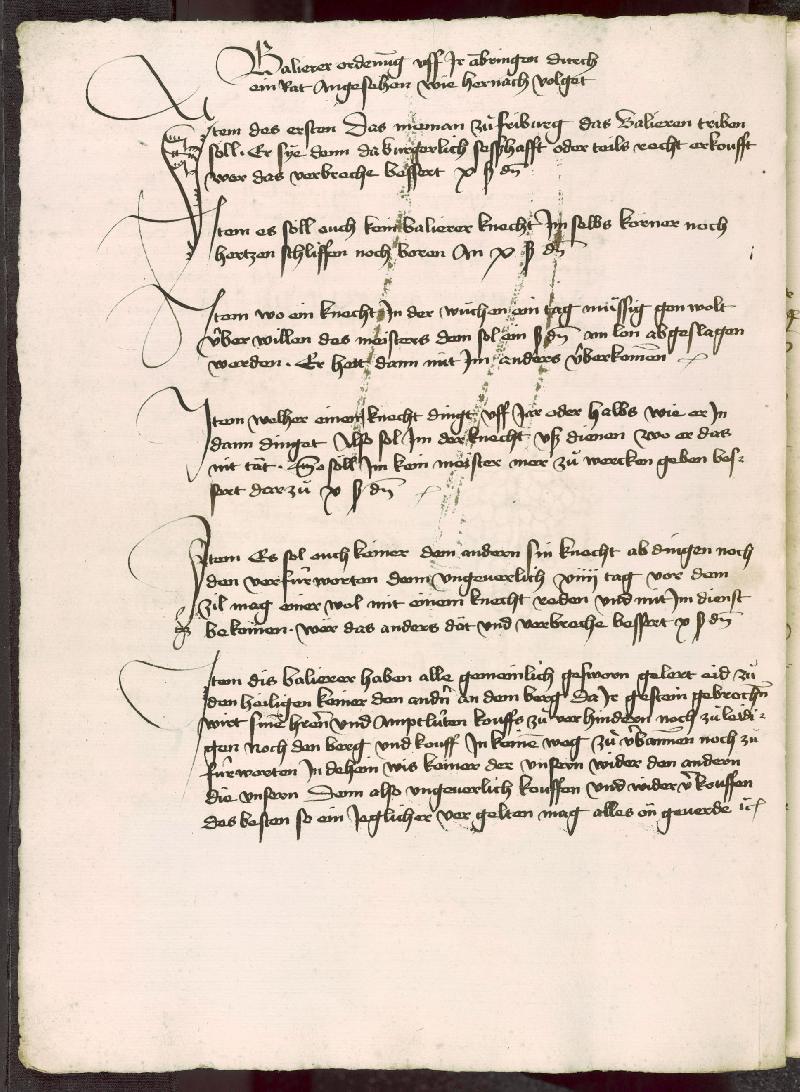 Balierer ordenũg vff Jr ãbringen durch
ein Rat Angesehen wie hernach volget
Jtem des ersten Das nieman zů friburg das Balieren triben
soll. Er sye denn da burgerlich sesshafft oder teils recht erkoufft
wer das verbreche bessert x ß dñ
Jtem es soll ouch kein balierer knecht Jm selbs körner noch
hertzen schliffen noch boren An x ß dñ
Jtem wo ein knecht Jn der wuchen ein tag müssig gen wolt
v̂ber willen des meisters dem sol ein ß dñ am lon abgeslagen
werden. Er hett dann mit Jm anders v̂berkomẽn
Jtem welher einen knecht dingt vff Jar oder halbs wie er Jn
dann dinget Also sol Jm der knecht vß dienen wo er das
nit tät. So soll Jm kein meister mer zů wercken geben bes-
sert dar zů x ß dñ
Jtem Es sol ouch keiner dem andern sin knecht ab dingen noch
den verfürworten denn vngeuerlich xiiii tag vor dem
zil mag einer wol mit einem knecht reden vnd mit Jm dienst
bekom̃en. wer das anders dät vnd verbreche bessert x ß dñ
Jtem dis balierer haben alle gemeinlich gesworn gelert eid zů
den heiligen keiner den andn̄ an dem berg Da Jr gestein gebrochñ
wirt sinẽ hrẽn vnd Amptlüten kouffs zů verhindern noch zů leidi-
gen noch den berg vnd kouff Jn keinẽ weg zů v̂bannen noch zů
fürworten Jn dehein wis keiner der vnsern wider den andern
die vnsern Denn also vngeuerlich kouffen vnd wider v̂kouffen
des besten so ein Jeglicher ver gelten mag alles õn geuerde